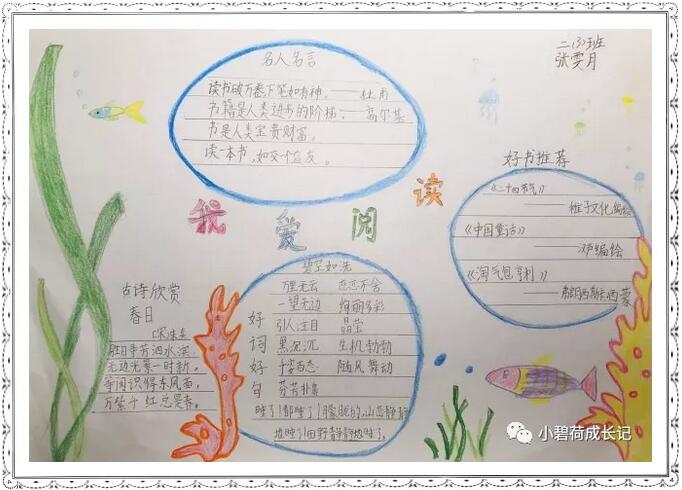 二(3)班
张雯月
名人名言
读书破万卷下笔如有神。——杜甫
书籍是人类进步的阶梯。——高尔基
书是人类宝贵财富。
读一本书,如交一个益友。
我爱阅读
好书推荐
《二十四节气》
——稚子文化编绘
《中国童话》
编绘
《淘气包亨利》
古诗欣赏
春日
宋朱熹
胜日寻芳泗水滨,
无边光景一时新。
等闲识得东风面,
万紫千红总是春。
好词好句
碧空如洗
万里无云 恋恋不舍
一望无边 绚丽多彩
引人注目 晶莹
黑沉沉 生机勃勃
千姿百态 随风舞动
芬芳扑鼻
睡了!都睡了!朦胧的山峦静静
地睡了!田野静静地睡了。
小碧荷成长记